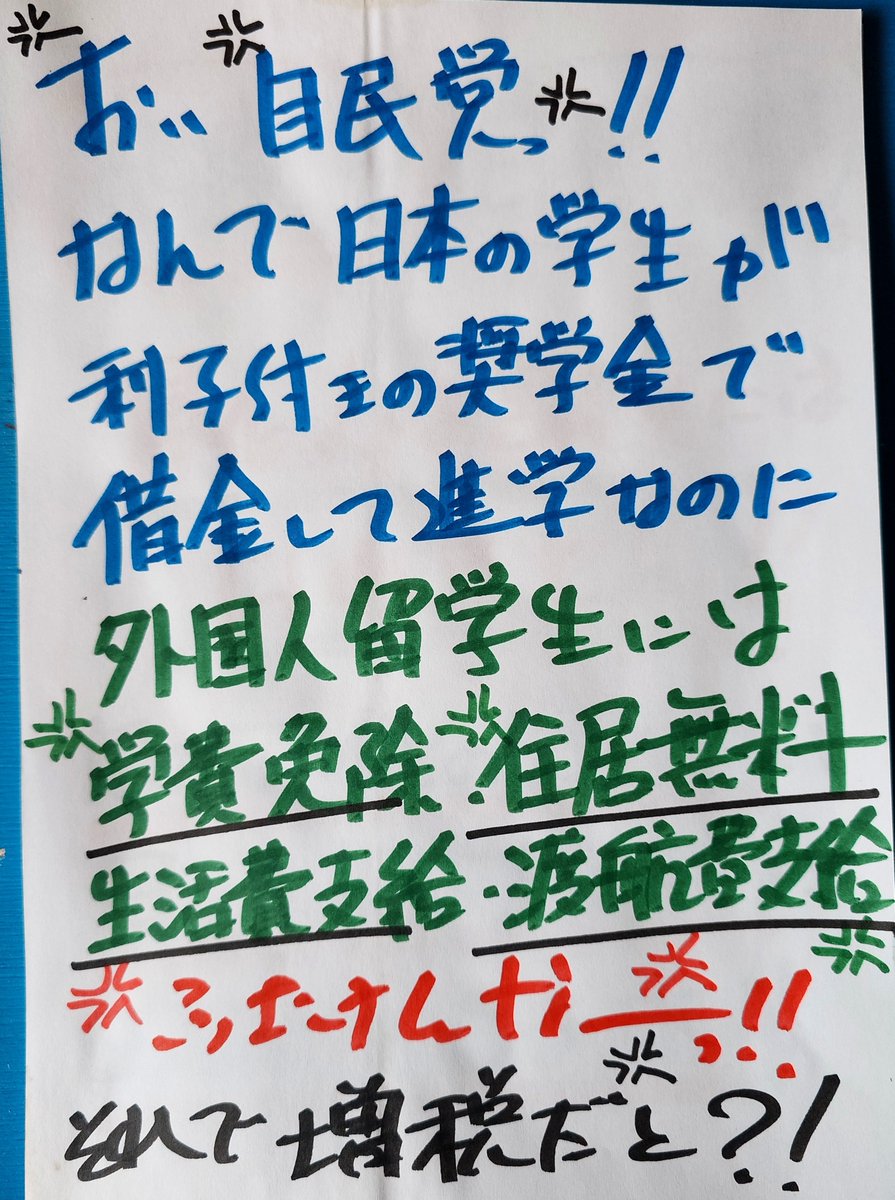 おい自民党っ!!
なんで日本の学生が
利子付きの奨学金で
借金して進学なのに
外国人留学生には
学費免除・住居無料
生活費支給・渡航費支給
ふざけんなーっ!!
で増税だと?!